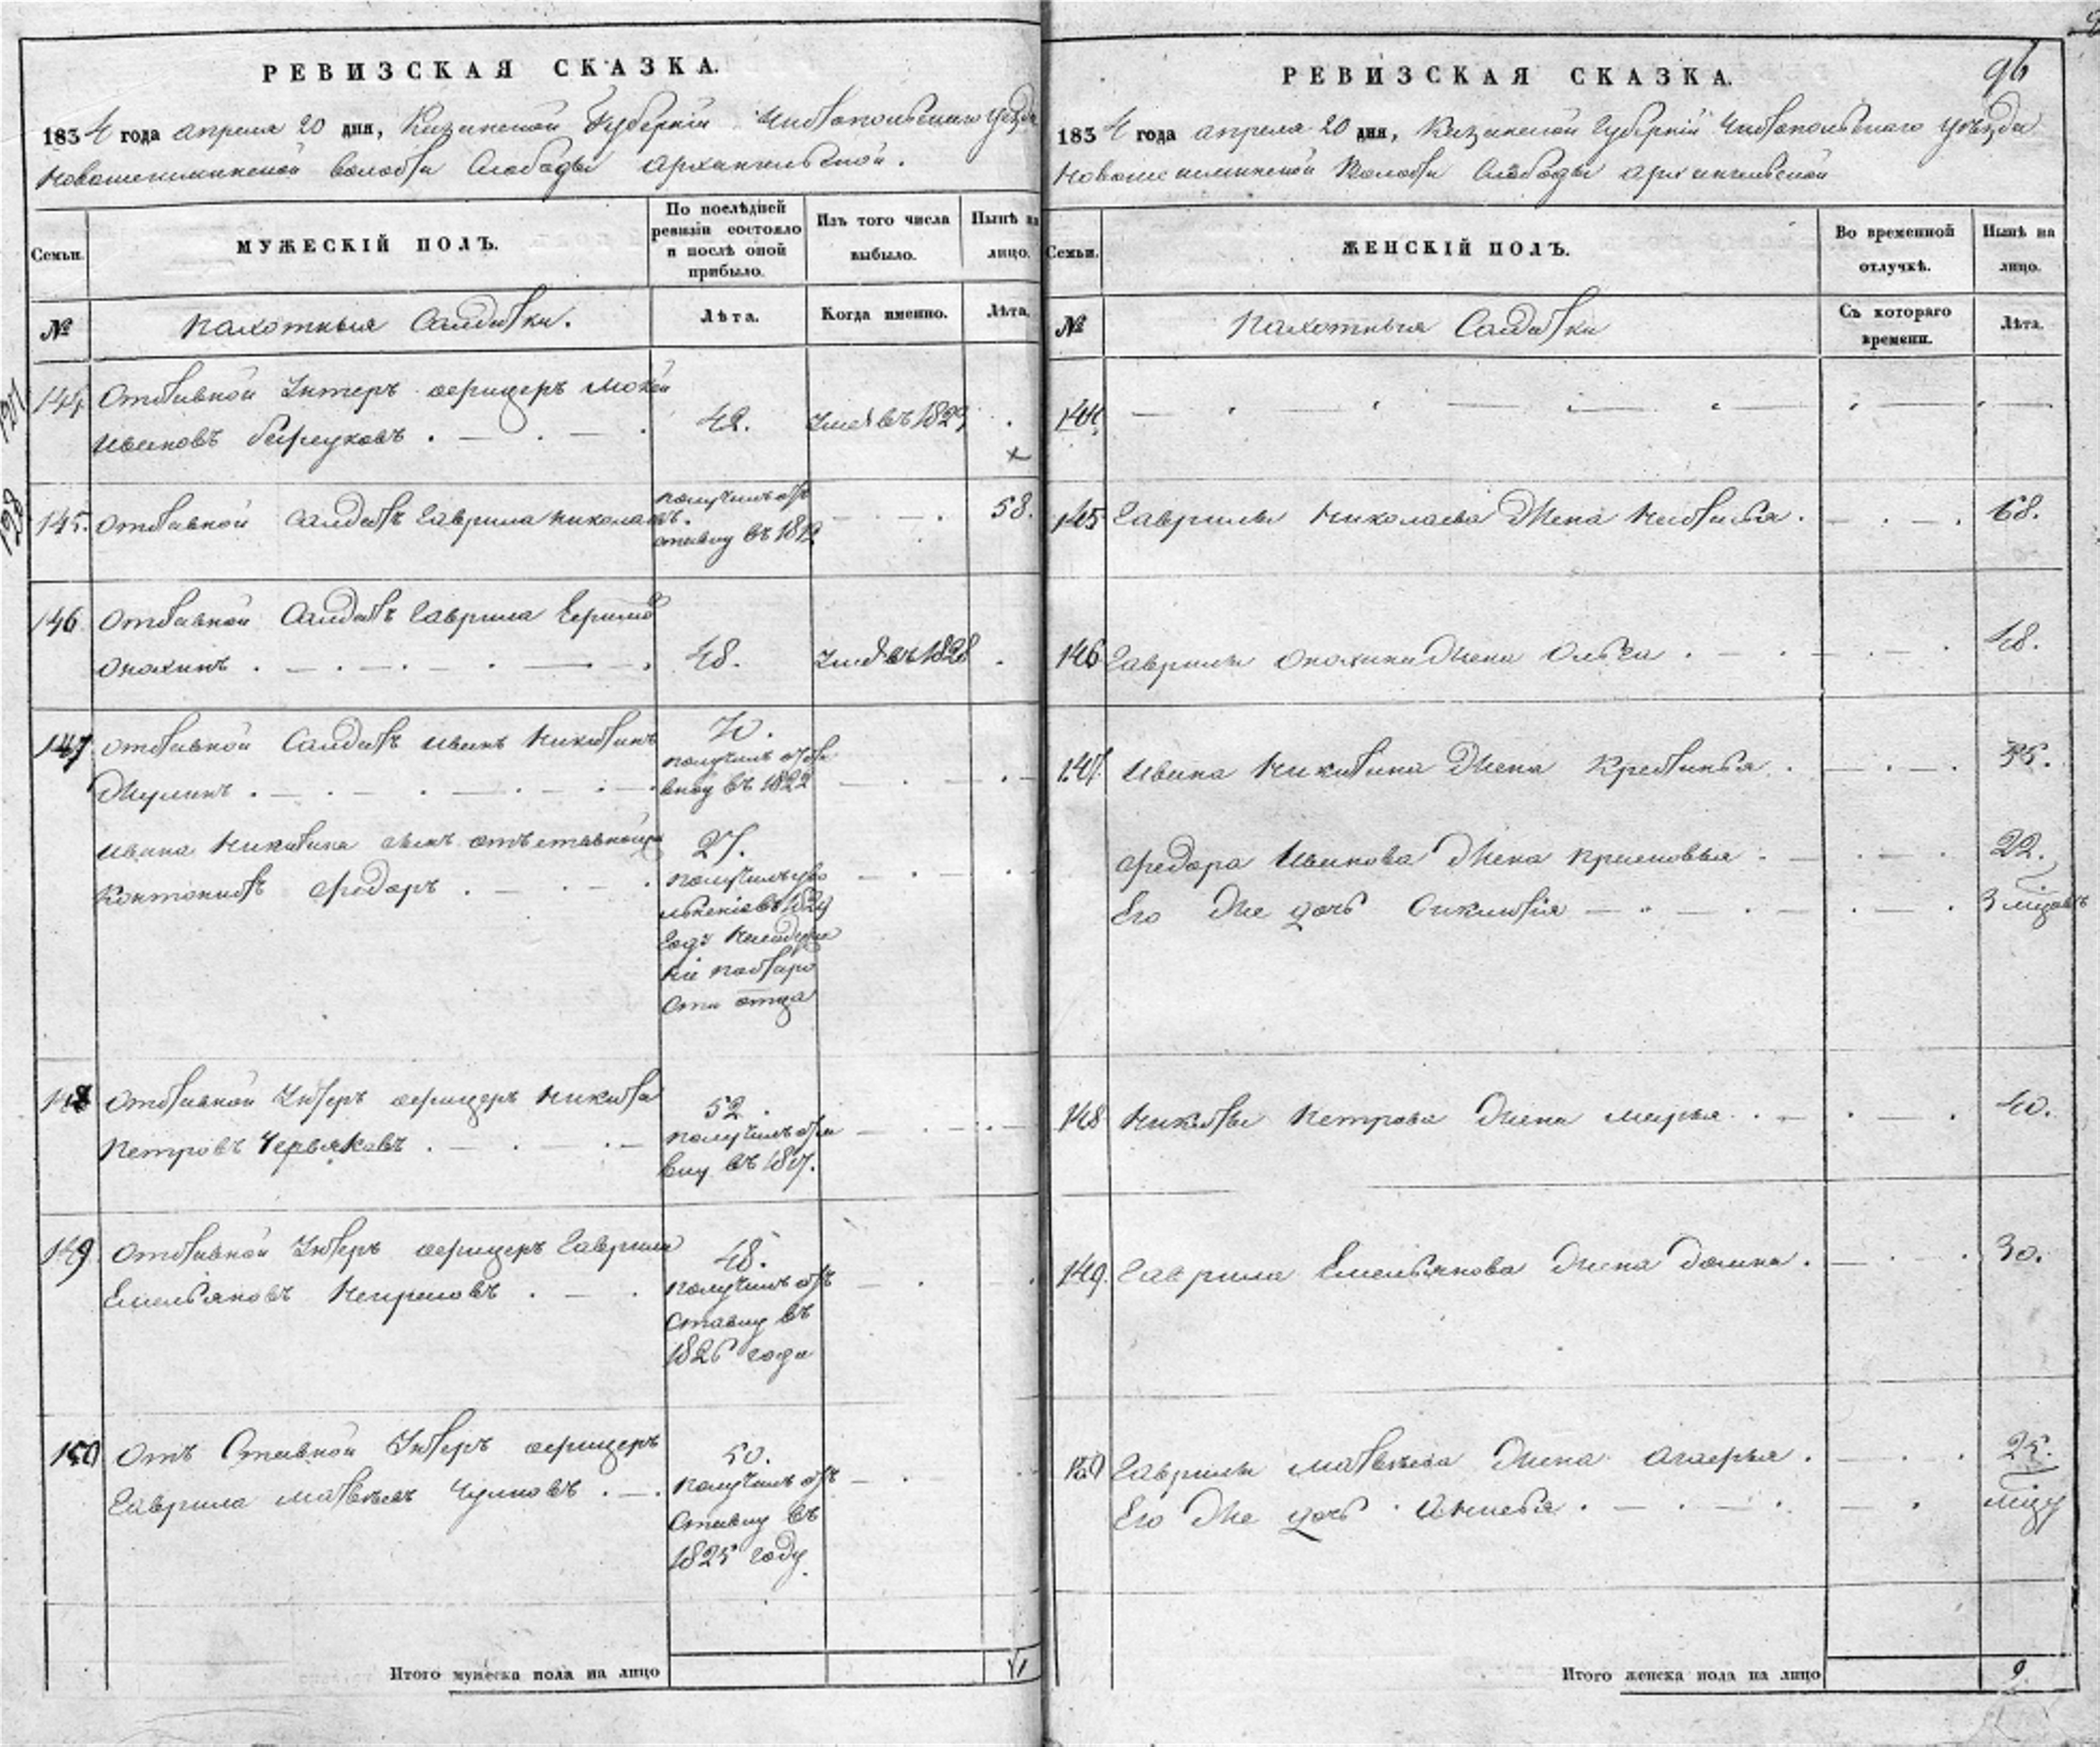 РЕВИЗСКАЯ СКАЗКА.
1834 года апреля 20 дня, Казанской Губернiи Чистопольскаго уезда
Новошешминской волости Слободы Архангельской.
Семьи.
МУЖЕСКIЙ ПОЛЪ.
По послѣдней ревизiи состояло и послѣ оной прибыло.
Изъ того числа выбыло.
Нынѣ на лицо.
№
Пахотныя Салдатки.
Лѣта.
Когда именно.
Лѣта.
127
144. Отставной Унтеръ афицеръ Мокей
Ивановъ 42. Умеръ въ 1829
128
145. Отставной Салдатъ Гаврила Николаевъ. получилъ от 58.
ставку въ
146 Отставной Салдатъ Гаврила
48. Умеръ въ 1828
147. Отставной Салдатъ Иванъ Никитинъ 70.
получилъ отста
вку въ 1822
Ивана Никитина сынъ отъставной 27.
Кантонистъ Федоръ получилъ уво
льненiе въ 1829
году
по старо
сти отца
148 Отставной Унтеръ афицеръ Никита 52.
Петровъ Червяковъ получилъ отста
вку въ 1817.
149 Отставной Унтеръ афицеръ Гаврила 48.
Емельяновъ получилъ отъ
ставку въ
1826 года
150 Отъ Ставной Унтеръ афицеръ 50.
Гаврила Матвѣевъ получилъ отъ
ставку въ
1825 году
Итого мужеска пола на лицо
96
РЕВИЗСКАЯ СКАЗКА.
1834 года апреля 20 дня, Казанской Губернiи Чистопольскаго уѣзда
Новошешминской Волости Слободы Архангельской
Семьи.
ЖЕНСКIЙ ПОЛЪ.
Во временной отлучкѣ.
Нынѣ на лицо.
№
Пахотныя Салдатки
Съ котораго времени.
Лѣта.
144.
145 Гаврилы Николаева Жена Настасья. 68.
146 Гаврилы Жена Ольга. 48.
147. Ивана Никитина Жена Крестинья.
Федора Иванова Жена 22.
Его Же дочь 3 мѣсяцовъ
148 Никиты Петрова Жена Марья. 40.
149. Гаврила Емельянова Жена Домна. 30.
150 Гаврилы Матвѣева Жена Агафья. 25.
Его Же дочь Анисья.
Итого женска пола на лицо 9